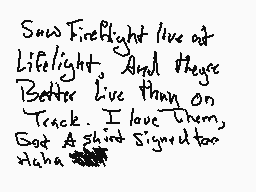 Saw Fireflight live at
Lifelight, And theyre
Better Live than on
Track. I love Them,
Got A shirt signed too
Haha